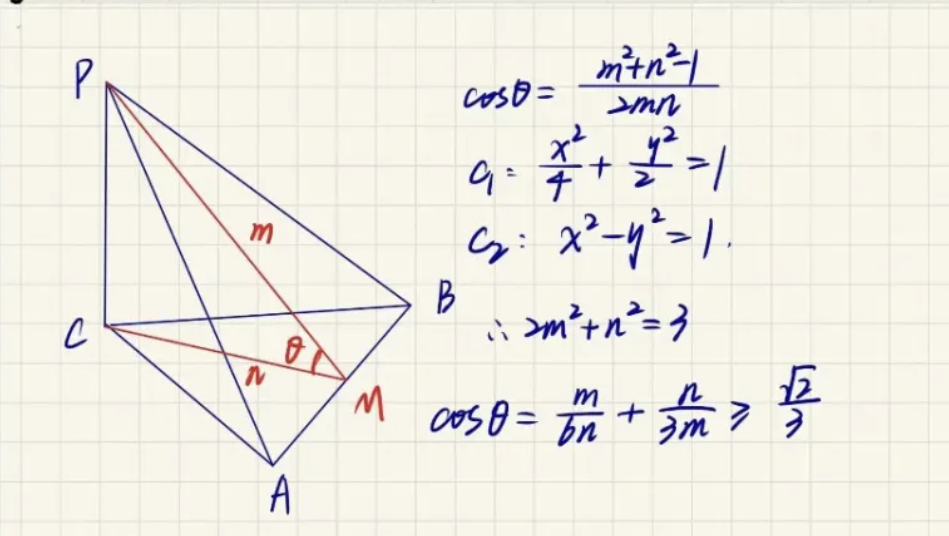 P
m
B
C
θ
n
M
A
cosθ = \frac{m²+n²-1}{2mn}
C₁: \frac{x²}{4} + \frac{y²}{2} = 1
C₂: x²-y²=1.
∴ 2m²+n²=3
cosθ = \frac{m}{6n} + \frac{n}{3m} ≥ \frac{√2}{3}